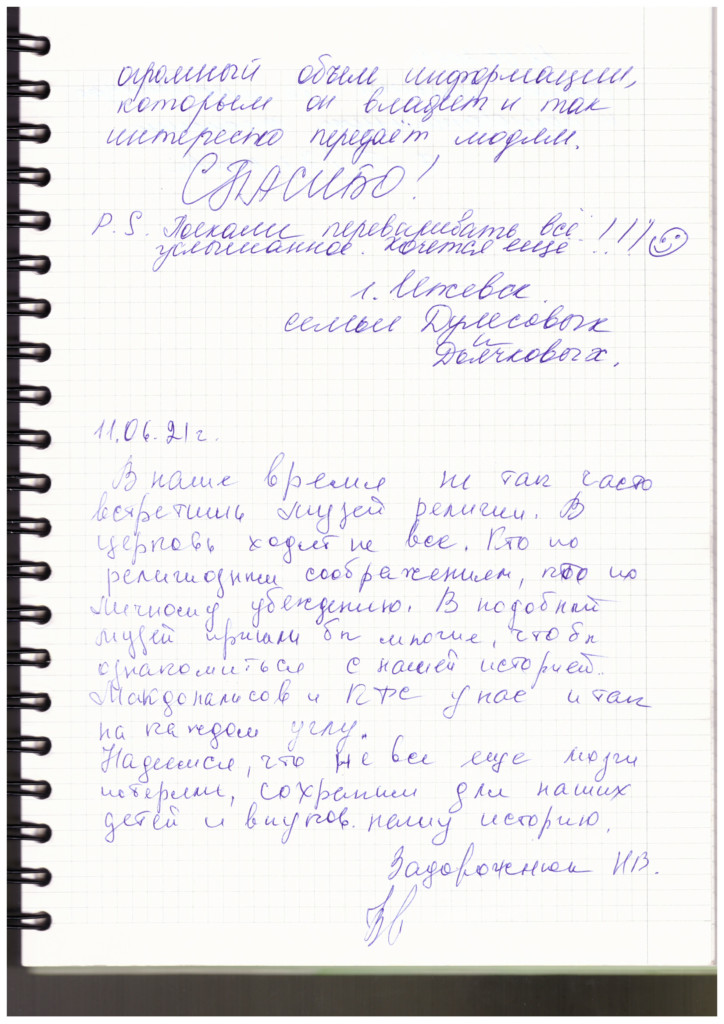 огромный объем информации,
которым он владеет и так
интересно передаёт людям.
СПАСИБО!
P.S. Поехали переваривать всё
услышанное. Хочется ещё...!!!
г. Ижевск.
семьи Дулесовых
и
.
11.06.21г.
В наше время не так часто
встретишь музей религии. В
церковь ходят не все. Кто по
религиозным соображениям, кто по
личному убеждению. В подобный
музей пришли бы многие, чтобы
ознакомиться с нашей историей.
Макдоналисов и КФС у нас и так
на каждом углу.
Надеемся, что не все еще мозги
потеряли, сохраним для наших
детей и внуков нашу историю.
Задорожнюк Н.В.